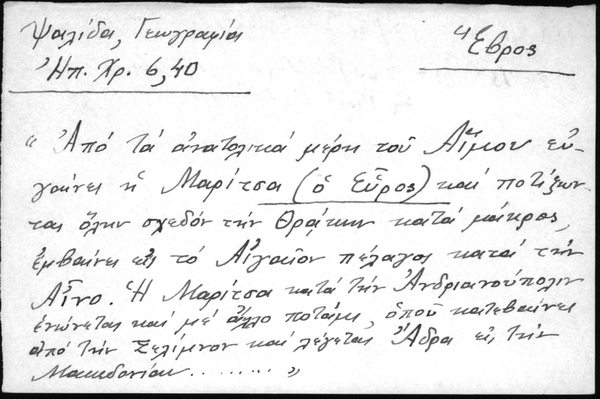 Ψαλίδα, Γεωγραφία
Ἠπ. Χρ. 6, 40
Ἕβρος
" Ἀπό τά ἀνατολικά μέρη τοῦ Αἵμου εὐ-
γαίνει ἡ Μαρίτσα (ὁ Εὗρος) καί ποτίζων-
τας ὅλην σχεδόν τήν Θράκην κατά μάκρος,
ἐμβαίνει εἰς τό Αἰγαῖον πέλαγος κατά τήν
Αἶνο. Ἡ Μαρίτσα κατά τήν Ἀνδριανούπολιν
ἑνώνεται καί μέ ἄλλο ποτάμι, ὁποῦ κατεβαίνει
ἀπό τήν Σελίμνον καί λέγεται Ἄδρα εἰς τήν
Μακεδονίαν ......... "